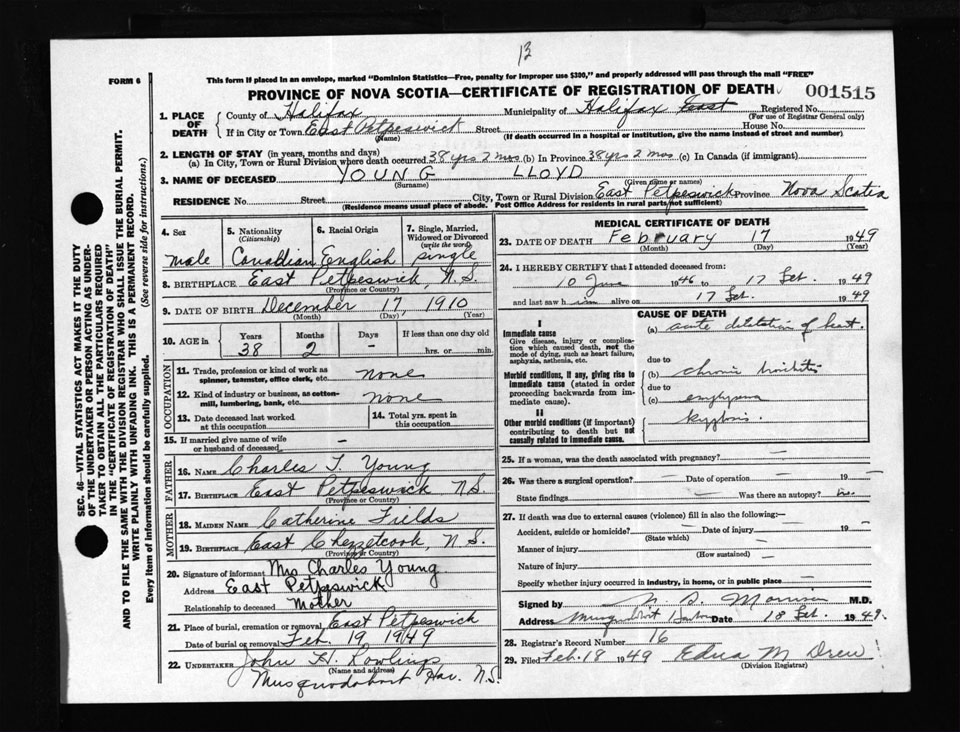 13
FORM 6
This form if placed in an envelope, marked "Dominion Statistics—Free, penalty for improper use $300," and properly addressed will pass through the mail "FREE"
PROVINCE OF NOVA SCOTIA—CERTIFICATE OF REGISTRATION OF DEATH 001515
1. PLACE OF DEATH
County of Halifax Municipality of Halifax East Registered No.
(For use of Registrar General only)
If in City or Town East Petpeswick Street House No.
(Name) (If death occurred in a hospital or institution, give the name instead of street and number)
2. LENGTH OF STAY (in years, months and days)
(a) In City, Town or Rural Division where death occurred 38 yrs 2 mos (b) In Province 38 yrs 2 mos. (c) In Canada (if immigrant)
3. NAME OF DECEASED YOUNG LLOYD
(Surname) (Given name or names)
RESIDENCE No. Street City, Town or Rural Division East Petpeswick Province Nova Scotia
(Residence means usual place of abode. Post Office Address for residents in rural parts not sufficient)
4. Sex 5. Nationality (Citizenship) 6. Racial Origin 7. Single, Married, Widowed or Divorced (write the word)
male Canadian English single
8. BIRTHPLACE East Petpeswick, N.S.
(Province or Country)
9. DATE OF BIRTH December 17, 1910
(Month) (Day) (Year)
10. AGE in Years Months Days If less than one day old
38 2 - hrs. or min.
OCCUPATION
11. Trade, profession or kind of work as spinner, teamster, office clerk, etc. none
12. Kind of industry or business, as cotton-mill, lumbering, bank, etc. none
13. Date deceased last worked at this occupation
14. Total yrs. spent in this occupation
15. If married give name of wife or husband of deceased -
FATHER
16. NAME Charles T. Young
17. BIRTHPLACE East Petpeswick N.S.
(Province or Country)
MOTHER
18. MAIDEN NAME Catherine Fields
19. BIRTHPLACE East Chezzetcook, N.S.
(Province or Country)
20. Signature of informant Mrs Charles Young
Address East Petpeswick
Relationship to deceased Mother
21. Place of burial, cremation or removal East Petpeswick
Date of burial or removal Feb. 19 1949
22. UNDERTAKER John H. Rowlings
(Name and address)
Musquodoboit Har. N.S.
MEDICAL CERTIFICATE OF DEATH
23. DATE OF DEATH February 17 1949
(Month) (Day) (Year)
24. I HEREBY CERTIFY that I attended deceased from:
10 June 1946 to 17 Feb. 1949
and last saw him alive on 17 Feb. 1949
CAUSE OF DEATH
I
Immediate cause
Give disease, injury or complication which caused death, not the mode of dying, such as heart failure, asphyxia, asthenia, etc.
(a) acute dilatation of heart.
due to
Morbid conditions, if any, giving rise to immediate cause (stated in order proceeding backwards from immediate cause).
(b) chronic bronchitis
due to
(c) emphysema
II
Other morbid conditions (if important) contributing to death but not causally related to immediate cause.
kyphosis.
25. If a woman, was the death associated with pregnancy? -
26. Was there a surgical operation? - Date of operation - 19 -
State findings - Was there an autopsy? no.
27. If death was due to external causes (violence) fill in also the following:—
Accident, suicide or homicide? - Date of injury - 19 -
(State which)
Manner of injury -
(How sustained)
Nature of injury -
Specify whether injury occurred in industry, in home, or in public place -
Signed by M.D.
Address Musquodoboit Harbour Date 18 Feb. 1949.
28. Registrar's Record Number 16
29. Filed Feb. 18 1949 Edna M. Drew
(Division Registrar)
SEC. 46—VITAL STATISTICS ACT MAKES IT THE DUTY
OF THE UNDERTAKER OR PERSON ACTING AS UNDER-
TAKER TO OBTAIN ALL THE PARTICULARS REQUIRED
IN THE "CERTIFICATE OF REGISTRATION OF DEATH"
AND TO FILE THE SAME WITH THE DIVISION REGISTRAR WHO SHALL ISSUE THE BURIAL PERMIT.
WRITE PLAINLY WITH UNFADING INK. THIS IS A PERMANENT RECORD.
Every item of information should be carefully supplied. (See reverse side for instructions.)